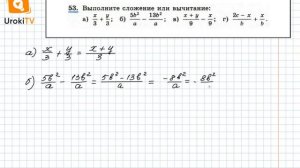 UrokiTV
53. Выполните сложение или вычитание:
а) x/3 + y/3; б) 5b²/a − 13b²/a; в) (x+y)/9 − x/9; г) (2c−x)/b + x/b.
а) x/3 + y/3 = (x+y)/3
б) 5b²/a − 13b²/a = (5b²−13b²)/a = −8b²/a = − 8b²